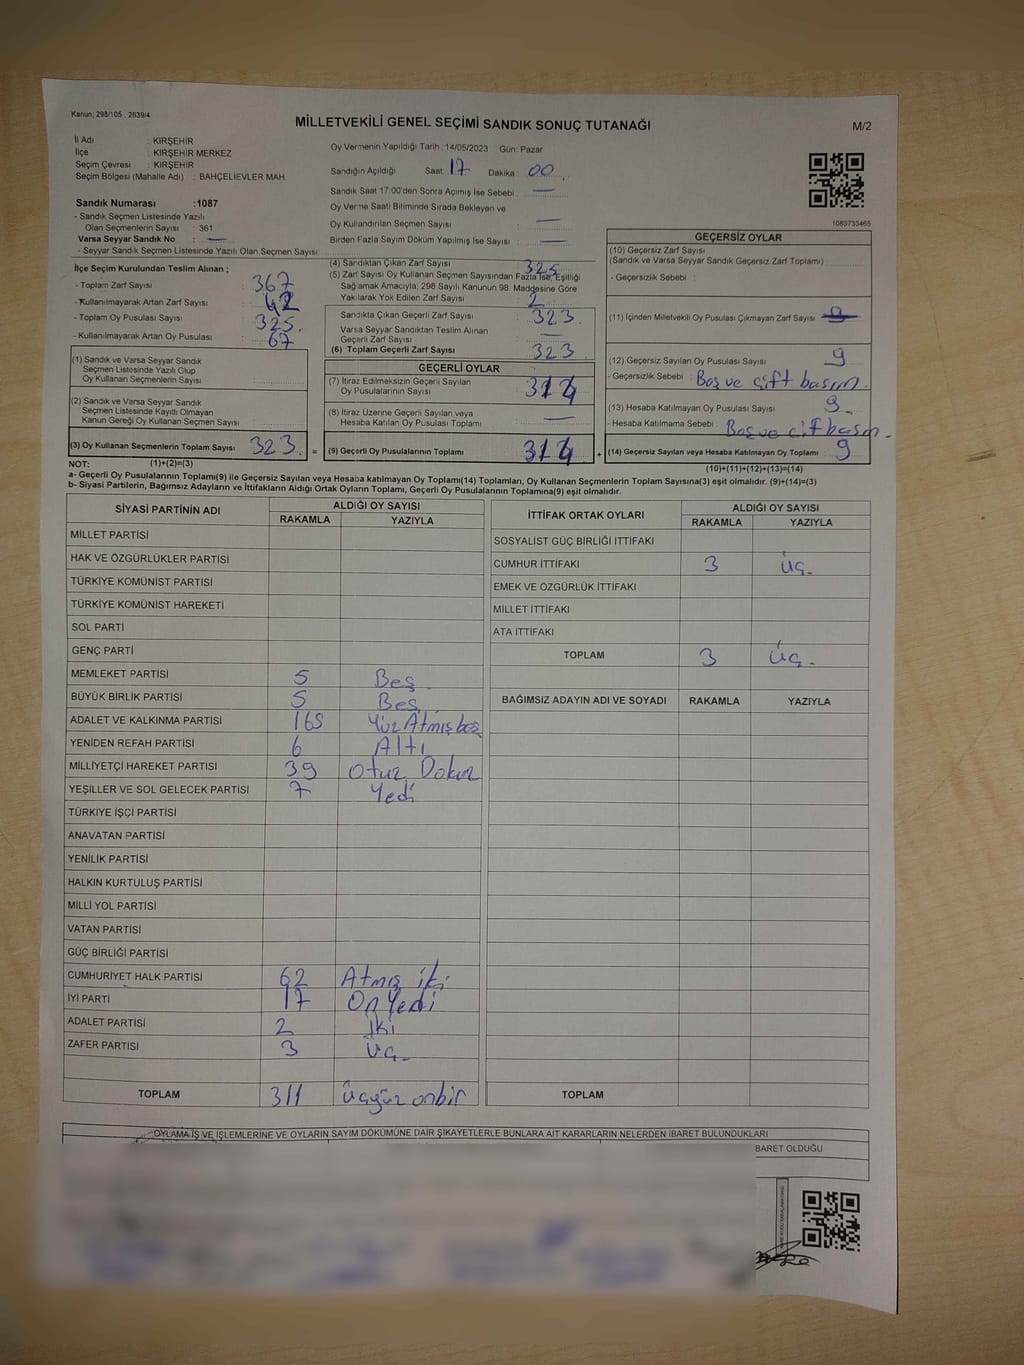 Kanun: 298/105 , 2839/4
MİLLETVEKİLİ GENEL SEÇİMİ SANDIK SONUÇ TUTANAĞI
M/2
İl Adı : KIRŞEHİR
İlçe : KIRŞEHİR MERKEZ
Seçim Çevresi : KIRŞEHİR
Seçim Bölgesi (Mahalle Adı) : BAHÇELİEVLER MAH.
Sandık Numarası :1087
- Sandık Seçmen Listesinde Yazılı
Olan Seçmenlerin Sayısı : 361
Varsa Seyyar Sandık No : —
- Seyyar Sandık Seçmen Listesinde Yazılı Olan Seçmen Sayısı:
Oy Vermenin Yapıldığı Tarih :14/05/2023 Gün: Pazar
Sandığın Açıldığı Saat: 17 Dakika : 00
Sandık Saat 17:00'den Sonra Açımış İse Sebebi : —
Oy Verme Saati Bitiminde Sırada Bekleyen ve
Oy Kullandırılan Seçmen Sayısı : —
Birden Fazla Sayım Döküm Yapılmış İse Sayısı : —
1083733465
İlçe Seçim Kurulundan Teslim Alınan ;
- Toplam Zarf Sayısı : 367
- Kullanılmayarak Artan Zarf Sayısı : 42
- Toplam Oy Pusulası Sayısı : 325.
- Kullanılmayarak Artan Oy Pusulası : 67
(1) Sandık ve Varsa Seyyar Sandık
Seçmen Listesinde Yazılı Olup
Oy Kullanan Seçmenlerin Sayısı :
(2) Sandık ve Varsa Seyyar Sandık
Seçmen Listesinde Kayıtlı Olmayan
Kanun Gereği Oy Kullanan Seçmen Sayısı :
(3) Oy Kullanan Seçmenlerin Toplam Sayısı : 323. =
(1)+(2)=(3)
(4) Sandıktan Çıkan Zarf Sayısı : 325
(5) Zarf Sayısı Oy Kullanan Seçmen Sayısından Fazla İse, Eşitliği
Sağlamak Amacıyla, 298 Sayılı Kanunun 98. Maddesine Göre
Yakılarak Yok Edilen Zarf Sayısı : 2
Sandıkta Çıkan Geçerli Zarf Sayısı : 323.
Varsa Seyyar Sandıktan Teslim Alınan
Geçerli Zarf Sayısı : —
(6) Toplam Geçerli Zarf Sayısı : 323
GEÇERLİ OYLAR
(7) İtiraz Edilmeksizin Geçerli Sayılan
Oy Pusulalarının Sayısı : 314
(8) İtiraz Üzerine Geçerli Sayılan veya
Hesaba Katılan Oy Pusulası Toplamı : —
(9) Geçerli Oy Pusulalarının Toplamı : 314 +
GEÇERSİZ OYLAR
(10) Geçersiz Zarf Sayısı
(Sandık ve Varsa Seyyar Sandık Geçersiz Zarf Toplamı) :
- Geçersizlik Sebebi :
(11) İçinden Milletvekili Oy Pusulası Çıkmayan Zarf Sayısı : 9
(12) Geçersiz Sayılan Oy Pusulası Sayısı : 9
- Geçersizlik Sebebi : Boş ve çift basım.
(13) Hesaba Katılmayan Oy Pusulası Sayısı : 9
- Hesaba Katılmama Sebebi : Boş ve çift basım.
(14) Geçersiz Sayılan veya Hesaba Katılmayan Oy Toplamı : 9
(10)+(11)+(12)+(13)=(14)
NOT:
a- Geçerli Oy Pusulalarının Toplamı(9) ile Geçersiz Sayılan veya Hesaba Katılmayan Oy Toplamı(14) Toplamları, Oy Kullanan Seçmenlerin Toplam Sayısına(3) eşit olmalıdır. (9)+(14)=(3)
b- Siyasi Partilerin, Bağımsız Adayların ve İttifakların Aldığı Ortak Oyların Toplamı, Geçerli Oy Pusulalarının Toplamına(9) eşit olmalıdır.
SİYASİ PARTİNİN ADI
ALDIĞI OY SAYISI
RAKAMLA YAZIYLA
MİLLET PARTİSİ
HAK VE ÖZGÜRLÜKLER PARTİSİ
TÜRKİYE KOMÜNİST PARTİSİ
TÜRKİYE KOMÜNİST HAREKETİ
SOL PARTİ
GENÇ PARTİ
MEMLEKET PARTİSİ 5 Beş
BÜYÜK BİRLİK PARTİSİ 5 Beş
ADALET VE KALKINMA PARTİSİ 165 Yüz Atmış beş
YENİDEN REFAH PARTİSİ 6 Altı
MİLLİYETÇİ HAREKET PARTİSİ 39 Otuz Dokuz
YEŞİLLER VE SOL GELECEK PARTİSİ 7 Yedi
TÜRKİYE İŞÇİ PARTİSİ
ANAVATAN PARTİSİ
YENİLİK PARTİSİ
HALKIN KURTULUŞ PARTİSİ
MİLLİ YOL PARTİSİ
VATAN PARTİSİ
GÜÇ BİRLİĞİ PARTİSİ
CUMHURİYET HALK PARTİSİ 62 Atmış iki
İYİ PARTİ 17 On Yedi
ADALET PARTİSİ 2 İki
ZAFER PARTİSİ 3 Üç
TOPLAM 311 Üçyüz onbir
İTTİFAK ORTAK OYLARI
ALDIĞI OY SAYISI
RAKAMLA YAZIYLA
SOSYALİST GÜÇ BİRLİĞİ İTTİFAKI
CUMHUR İTTİFAKI 3 Üç
EMEK VE ÖZGÜRLÜK İTTİFAKI
MİLLET İTTİFAKI
ATA İTTİFAKI
TOPLAM 3 Üç
BAĞIMSIZ ADAYIN ADI VE SOYADI RAKAMLA YAZIYLA
TOPLAM
OYLAMA İŞ VE İŞLEMLERİNE VE OYLARIN SAYIM DÖKÜMÜNE DAİR ŞİKAYETLERLE BUNLARA AİT KARARLARIN NELERDEN İBARET BULUNDUKLARI
BARET OLDUĞU